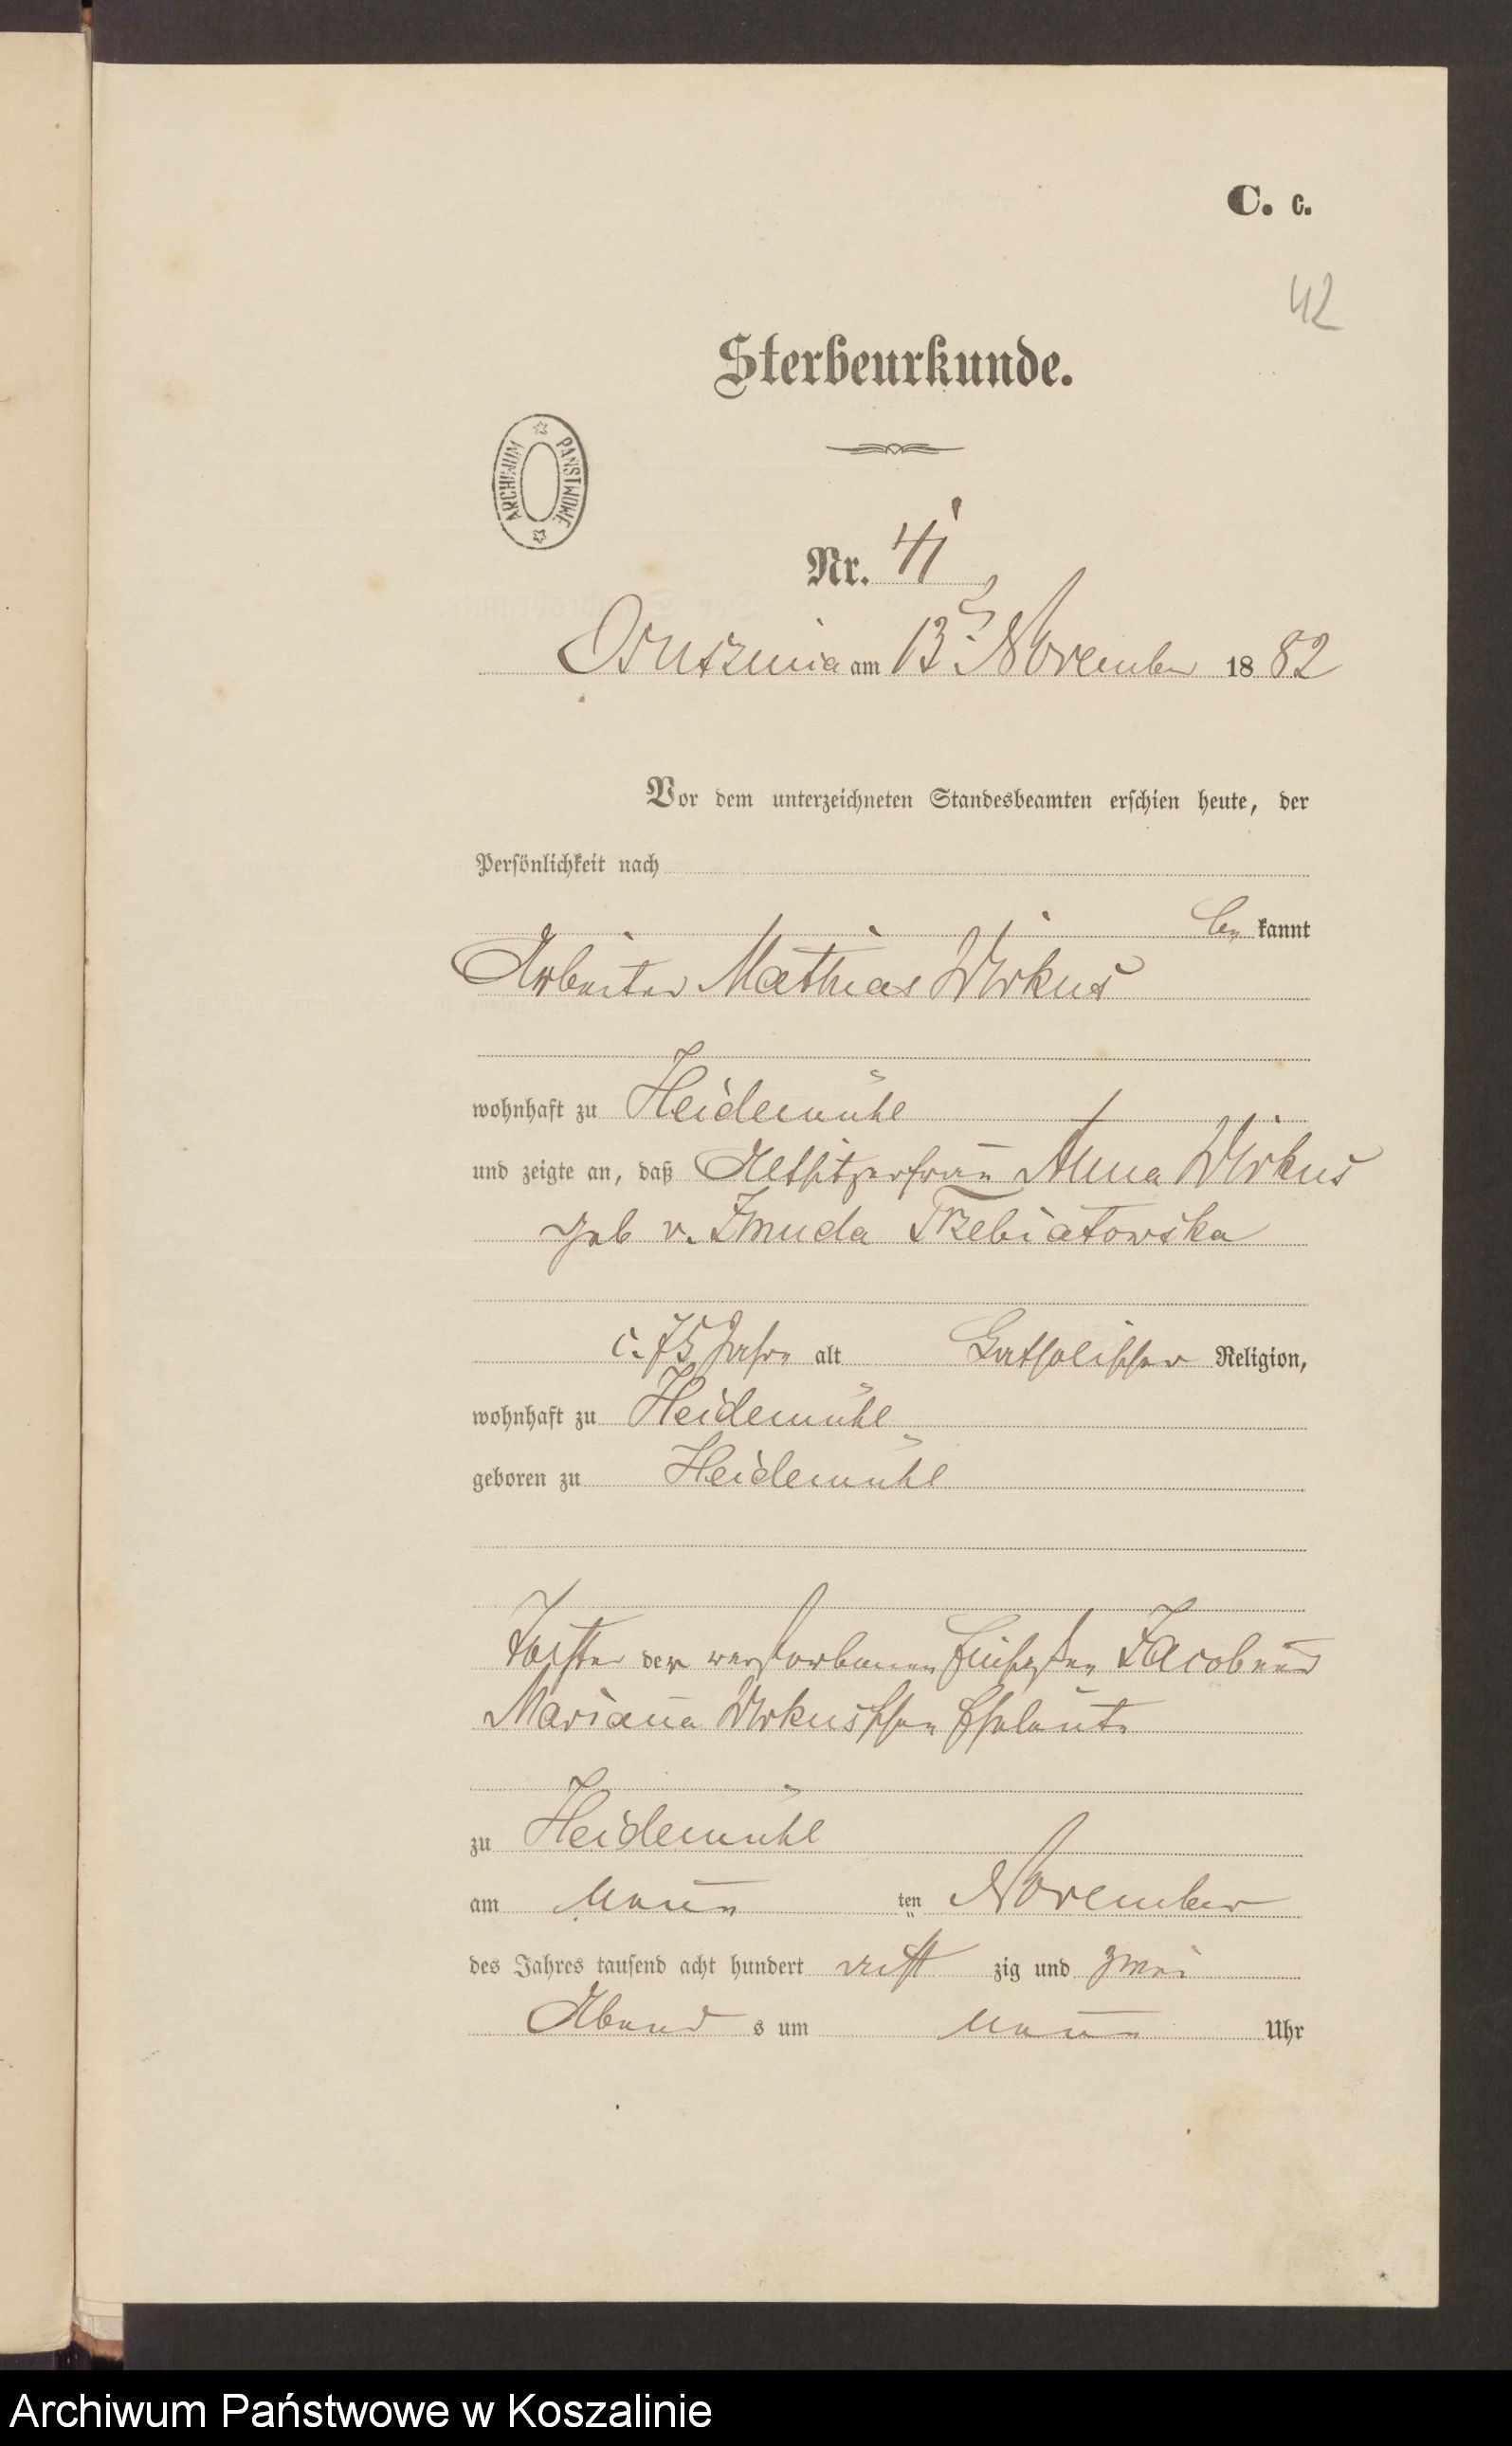 C. c.
42
Sterbeurkunde.
ARCHIWUM PAŃSTWOWE
Nr. 41
Osusznica am 13. November 1882
Vor dem unterzeichneten Standesbeamten erschien heute, der
Persönlichkeit nach
be kannt
Arbeiter Mathias Wirkus
wohnhaft zu Heidemühl
und zeigte an, daß Altsitzerfrau Anna Wirkus
geb v. Zmuda Trzebiatowska
c. 75 Jahre alt Catholischer Religion,
wohnhaft zu Heidemühl
geboren zu Heidemühl
Tochter der verstorbenen Jacob und
Marianna Wirkusschen Eheleute
zu Heidemühl
am Neun ten November
des Jahres tausend acht hundert acht zig und zwei
Abend s um Neun Uhr
Archiwum Państwowe w Koszalinie